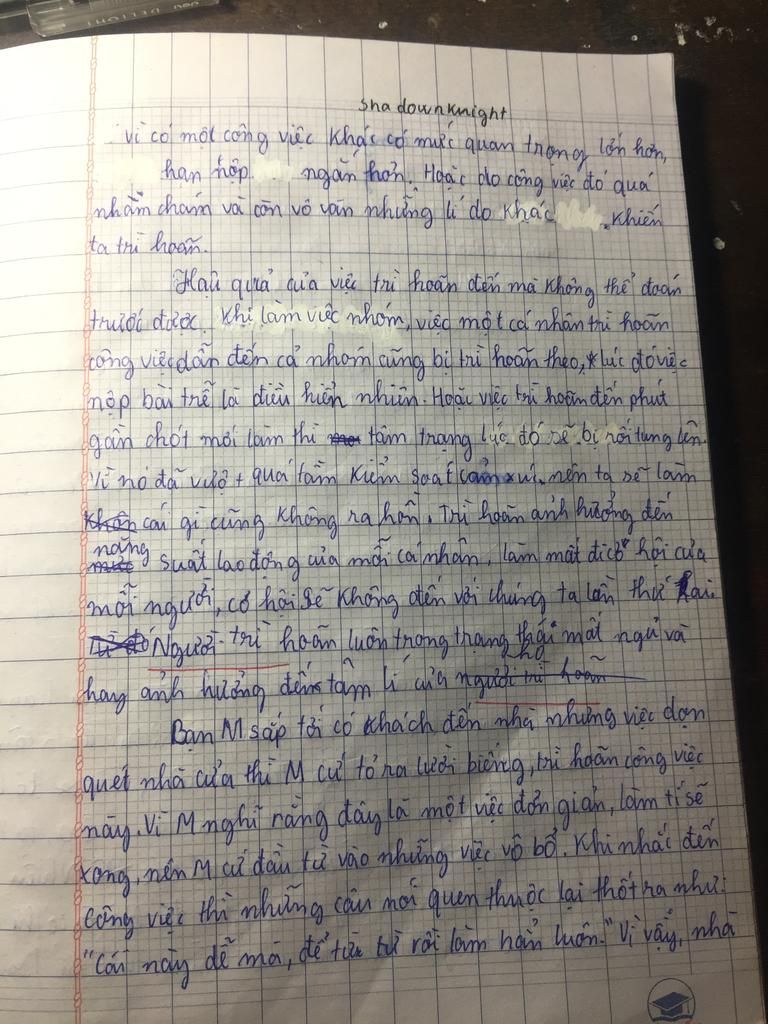 Shadownknight
vì có một công việc khác có mức quan trọng lớn hơn,
hạn hộp ngắn hơn. Hoặc do công việc đó quá
nhằm chám và còn vô vàn những lí do khác khiến
ta trì hoãn.
Hậu quả của việc trì hoãn đến mà không thể đoán
trước được. Khi làm việc nhóm, việc một cá nhân trì hoãn
công việc dẫn đến cả nhóm cũng bị trì hoãn theo, lúc đó việc
nộp bài trễ là điều hiển nhiên. Hoặc việc trì hoãn đến phút
gần chót mới làm thì tâm trạng lúc đó sẽ bị rối tung lên.
Vì nó đã vượt quá tầm kiểm soát cảm xúc, nên ta sẽ làm
cái gì cũng không ra hồn. Trì hoãn ảnh hưởng đến
năng suất lao động của mỗi cá nhân, làm mất đi cơ hội của
mỗi người, cơ hội sẽ không đến với chúng ta lần thứ hai.
Người trì hoãn luôn trong trạng thái mất ngủ và
hay ảnh hưởng đến tâm lí của họ
Bạn M sắp tới có khách đến nhà nhưng việc dọn
quét nhà cửa thì M cứ tỏ ra lười biếng, trì hoãn công việc
này. Vì M nghĩ rằng đây là một việc đơn giản, làm tí sẽ
xong, nên M cứ đầu tư vào những việc vô bổ. Khi nhắc đến
công việc thì những câu nói quen thuộc lại thốt ra như:
"Cái này dễ mà, để từ từ rồi làm hẳn luôn." Vì vậy, nhà